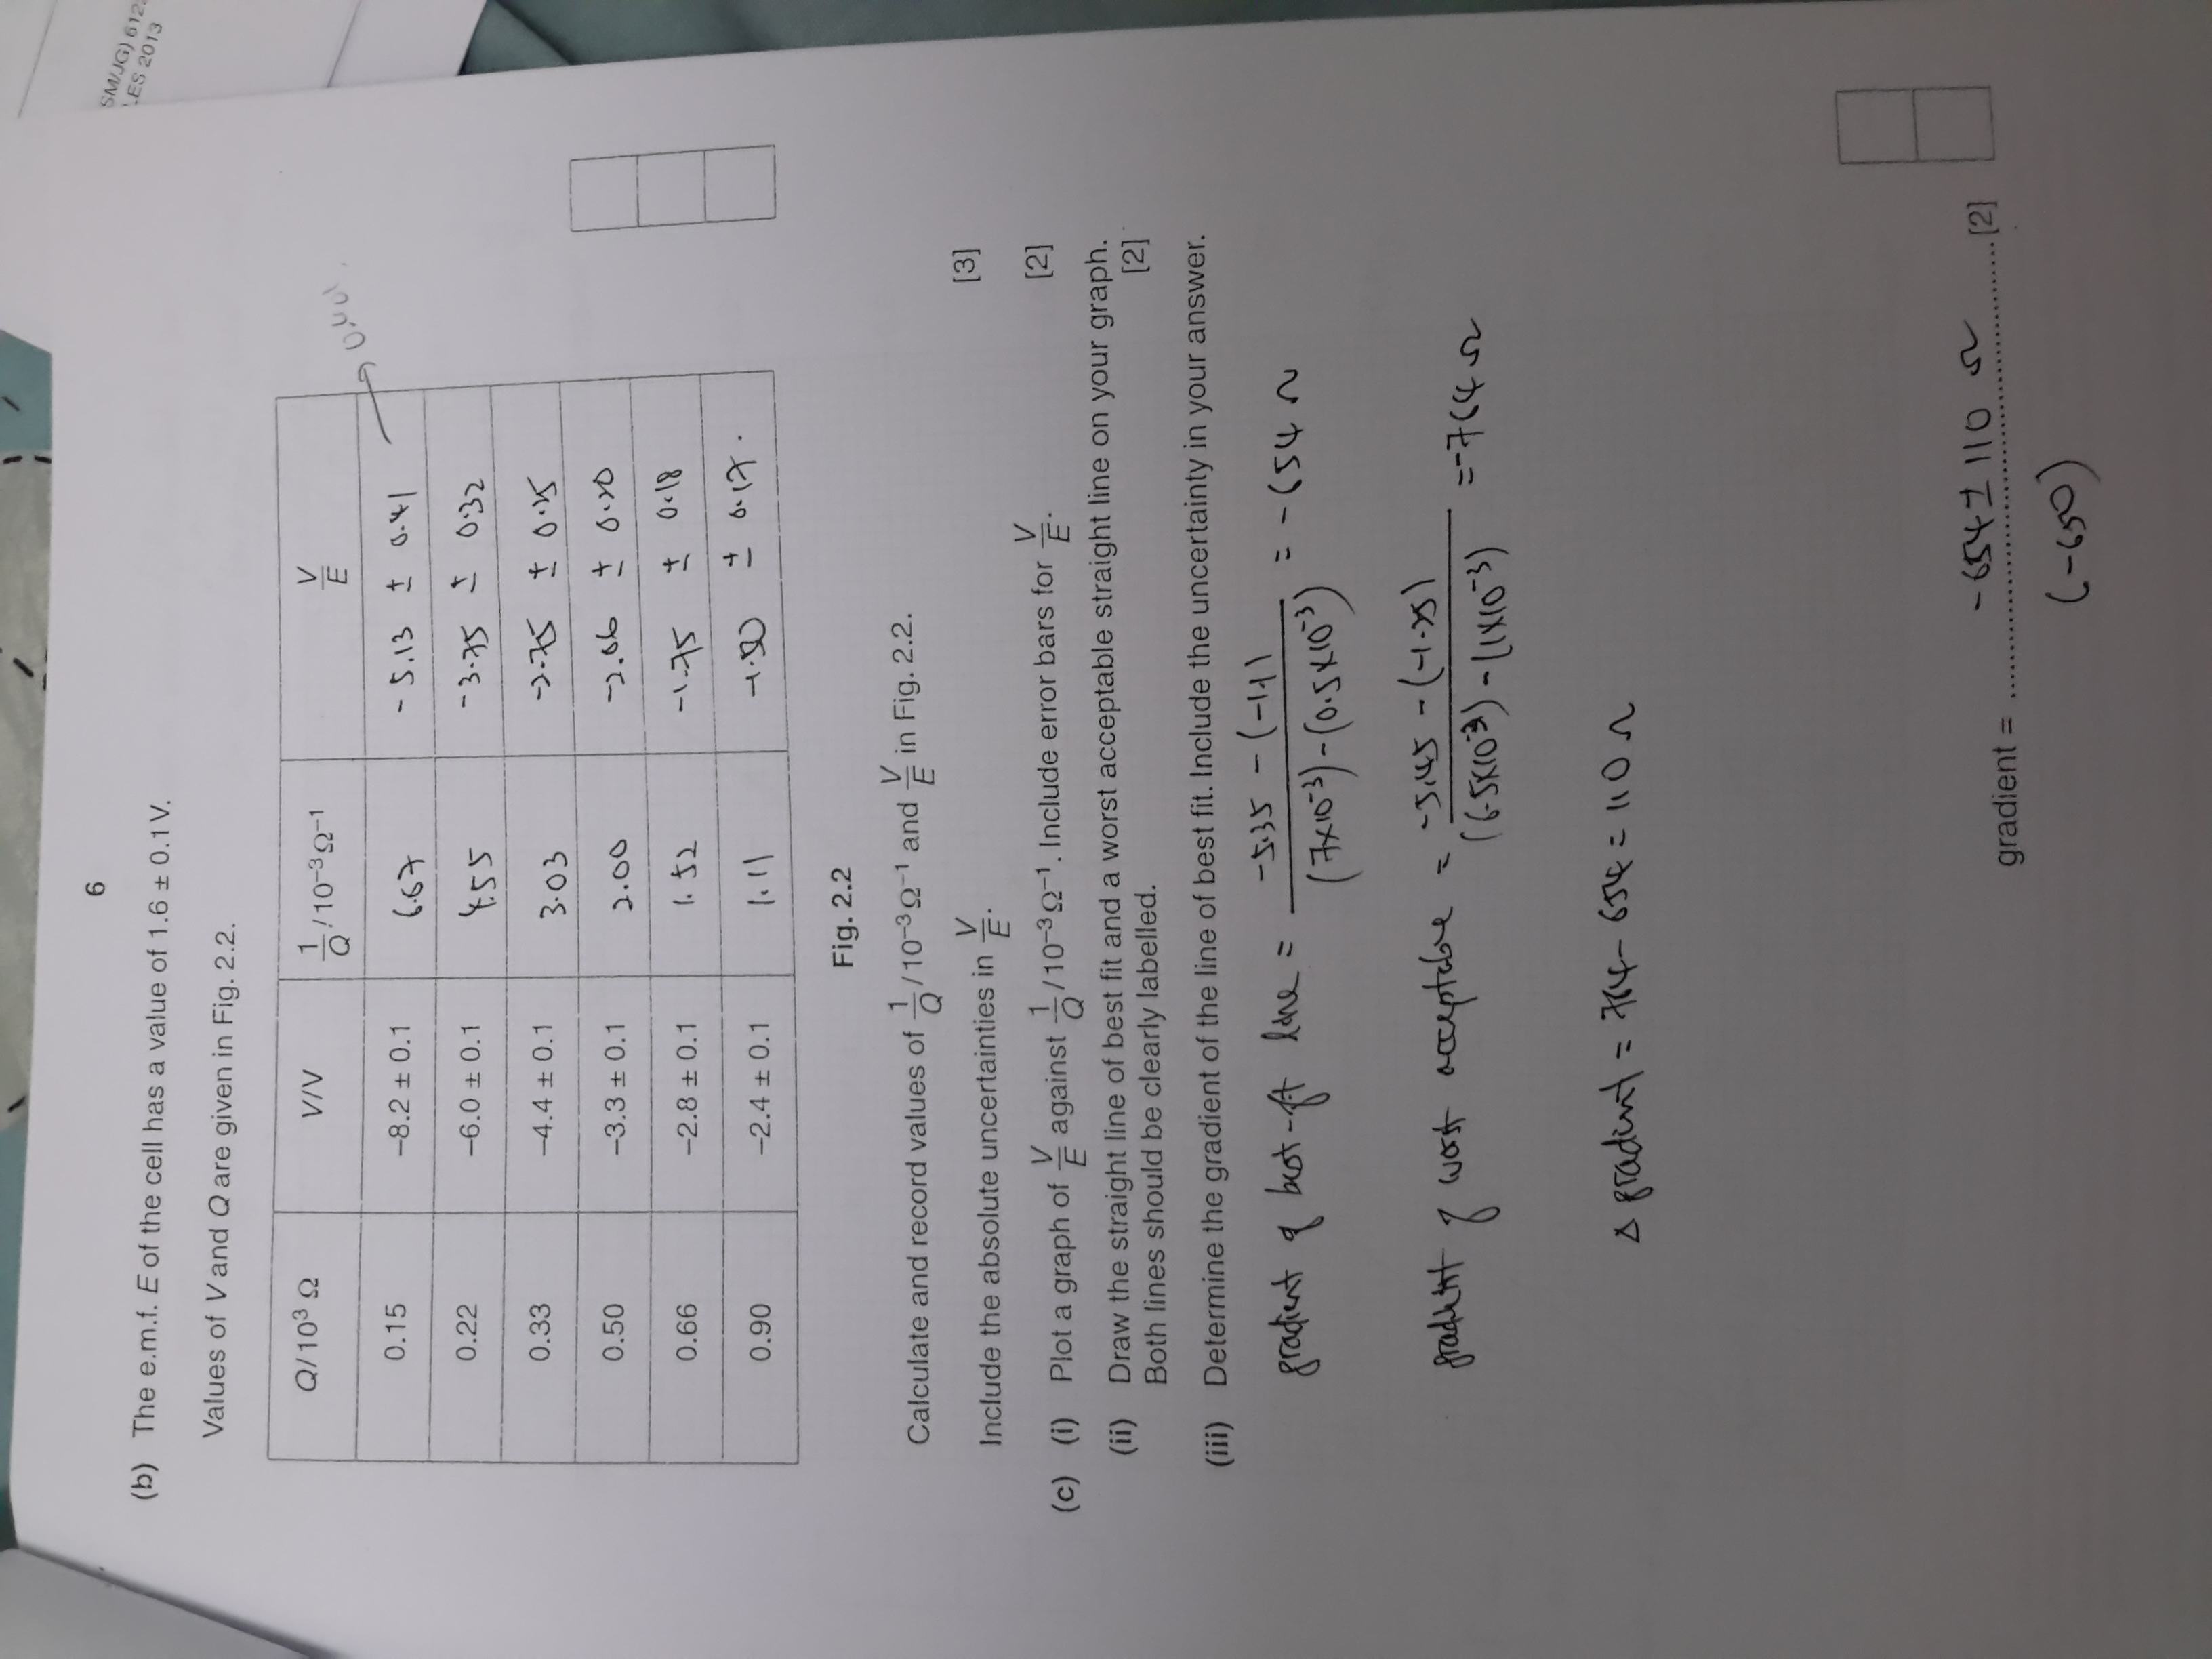 6
SM/JG) 612
LES 2013
(b) The e.m.f. E of the cell has a value of 1.6 ± 0.1 V.
Values of V and Q are given in Fig. 2.2.
Q/10³ Ω V/V 1/Q /10⁻³Ω⁻¹ V/E
0.15 −8.2 ± 0.1 6.67 -5.13 ± 0.41
0.22 −6.0 ± 0.1 4.55 -3.75 ± 0.32
0.33 −4.4 ± 0.1 3.03 -2.75 ± 0.25
0.50 −3.3 ± 0.1 2.00 -2.06 ± 0.20
0.66 −2.8 ± 0.1 1.52 -1.75 ± 0.18
0.90 −2.4 ± 0.1 1.11 -1.50 ± 0.17.
Fig. 2.2
Calculate and record values of 1/Q /10⁻³Ω⁻¹ and V/E in Fig. 2.2.
Include the absolute uncertainties in V/E. [3]
(c) (i) Plot a graph of V/E against 1/Q /10⁻³Ω⁻¹. Include error bars for V/E. [2]
(ii) Draw the straight line of best fit and a worst acceptable straight line on your graph.
Both lines should be clearly labelled. [2]
(iii) Determine the gradient of the line of best fit. Include the uncertainty in your answer.
gradient of best-fit line = -5.35 - (-1.1) / (7×10⁻³) - (0.5×10⁻³) = -654 Ω
gradient of worst acceptable = -5.45 - (-1.25) / (6.5×10⁻³) - (1×10⁻³) = -764 Ω
Δ gradient = 764 - 654 = 110 Ω
gradient = -654 ± 110 Ω [2]
(-650)